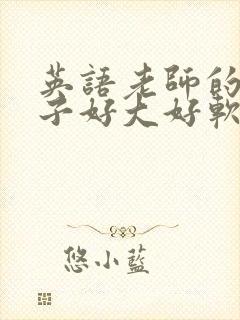 英語老師的
子好大好軟
悠小藍